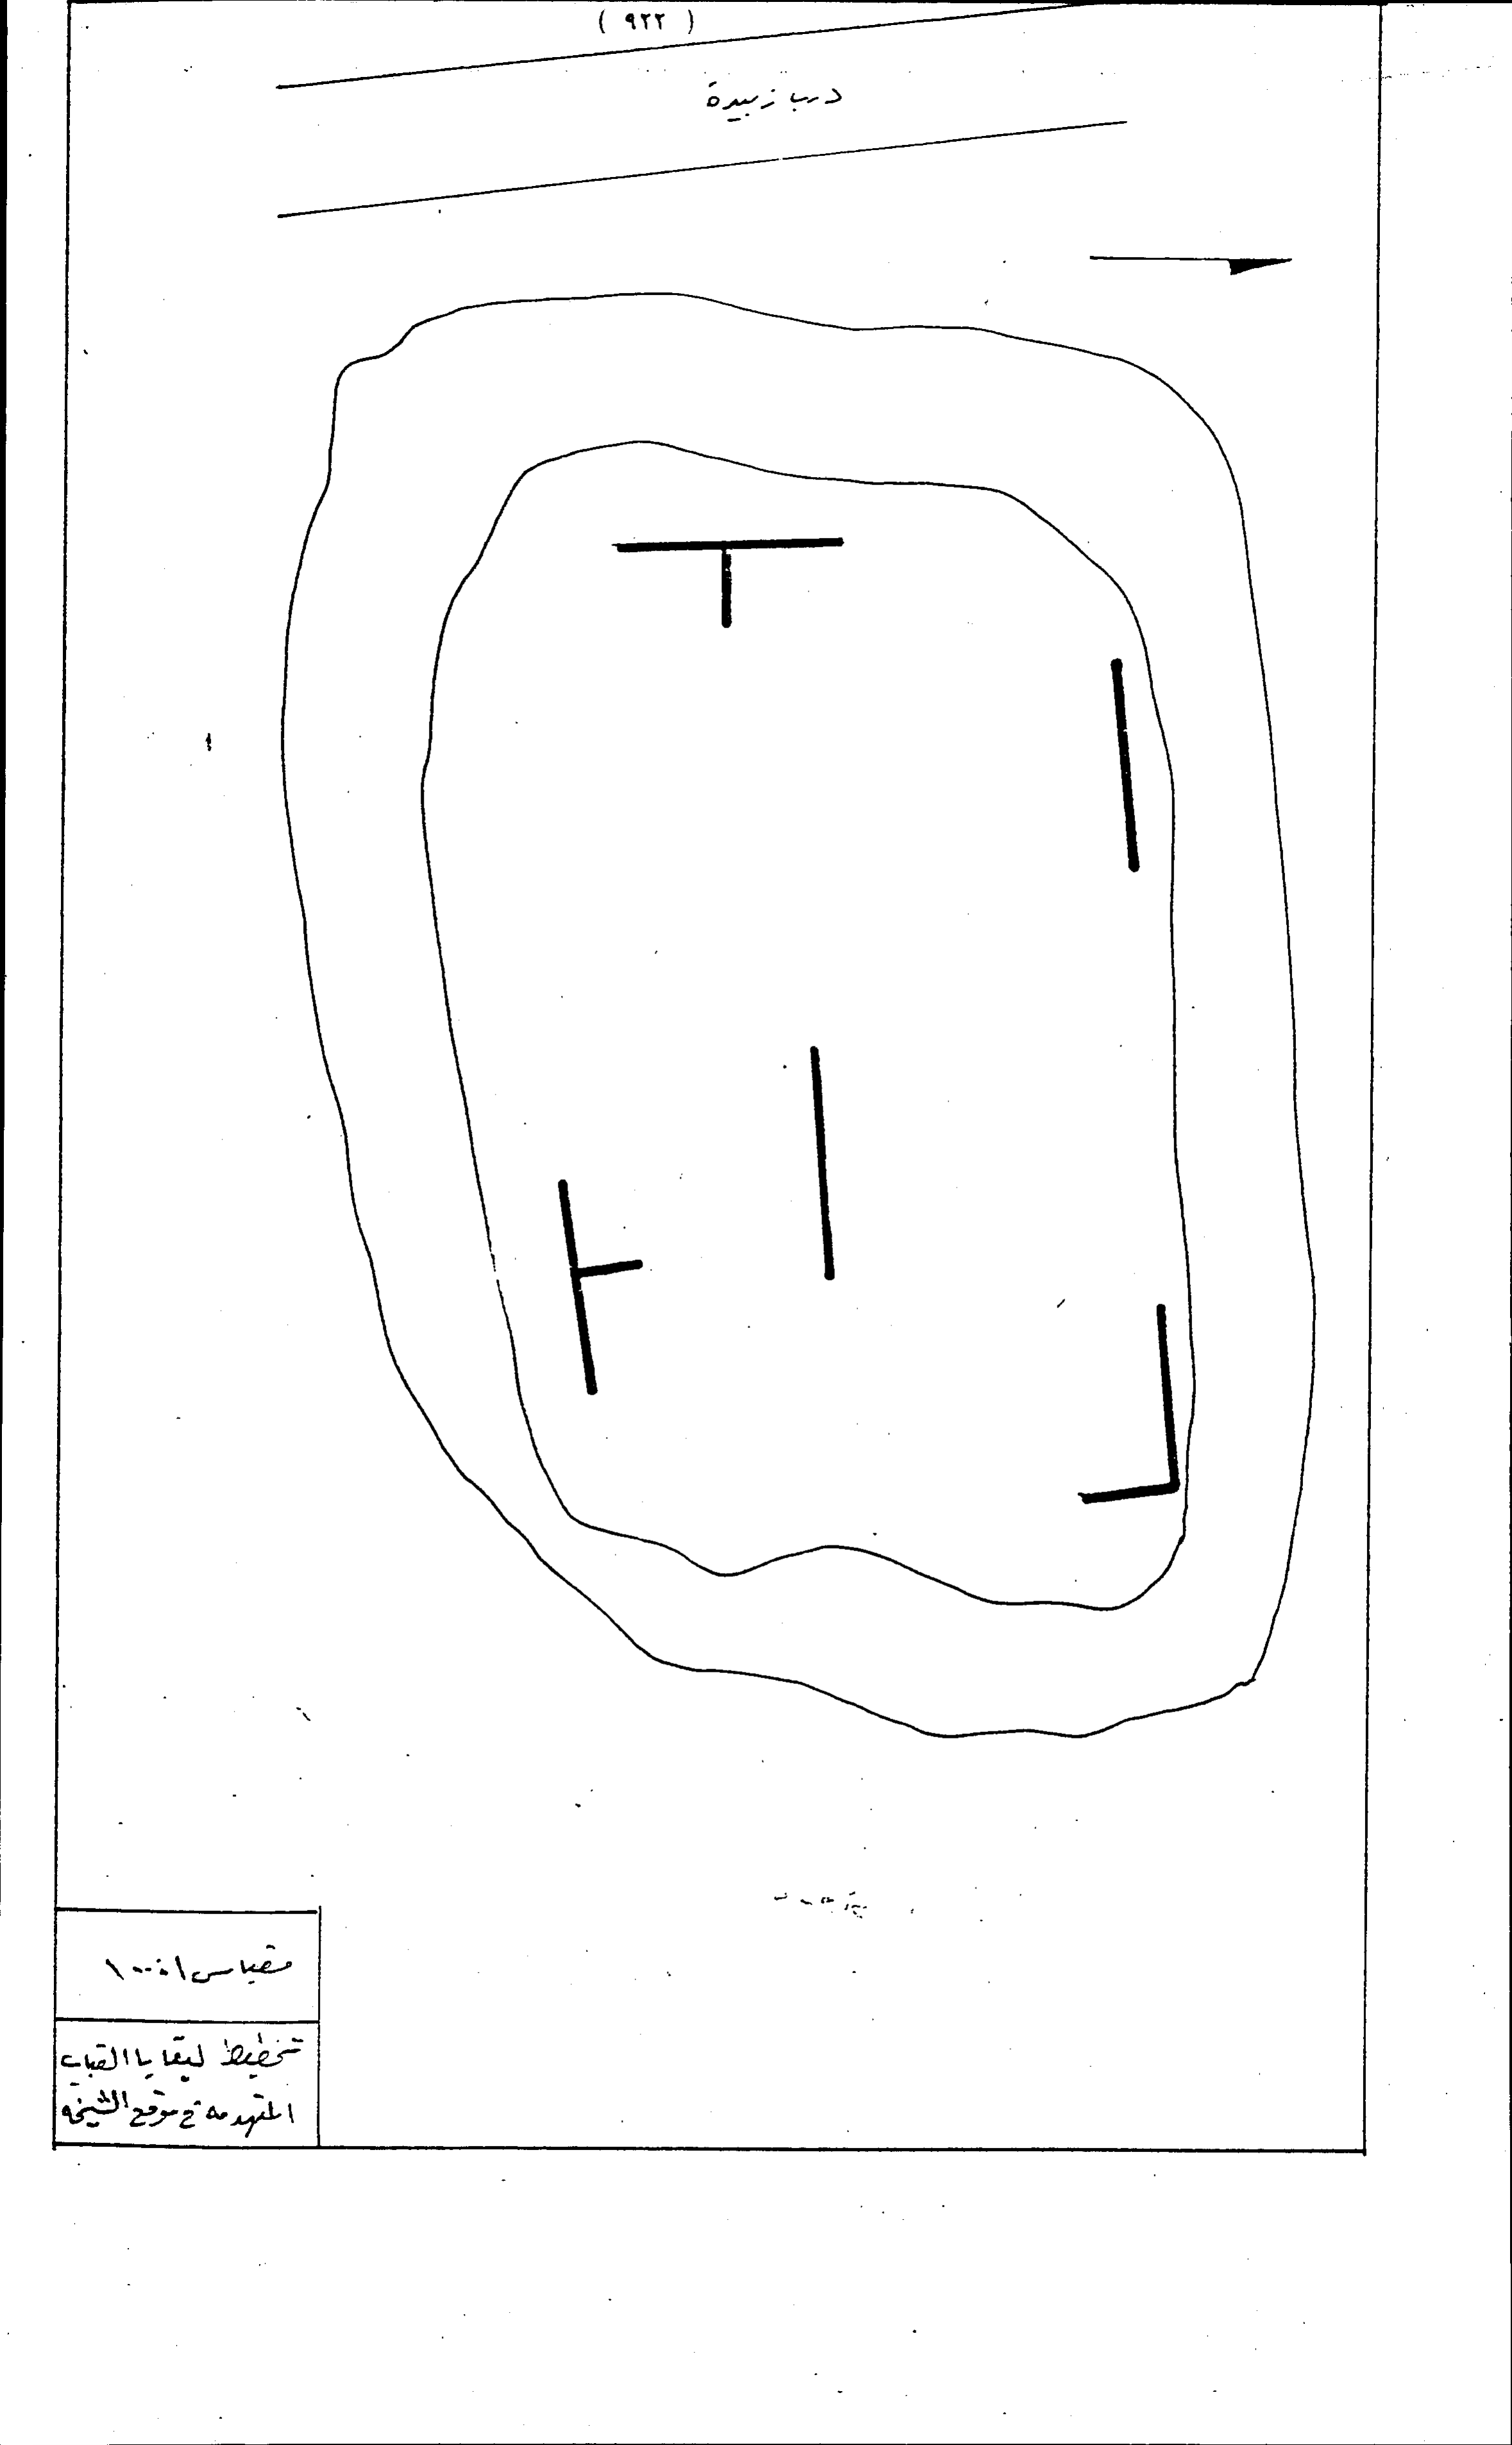 ( ٩٢٢ )
درب زبيدة
مقياس ١:١٠٠
تخطيط لبقايا القباب
المتهدمه في موقع الشيخه